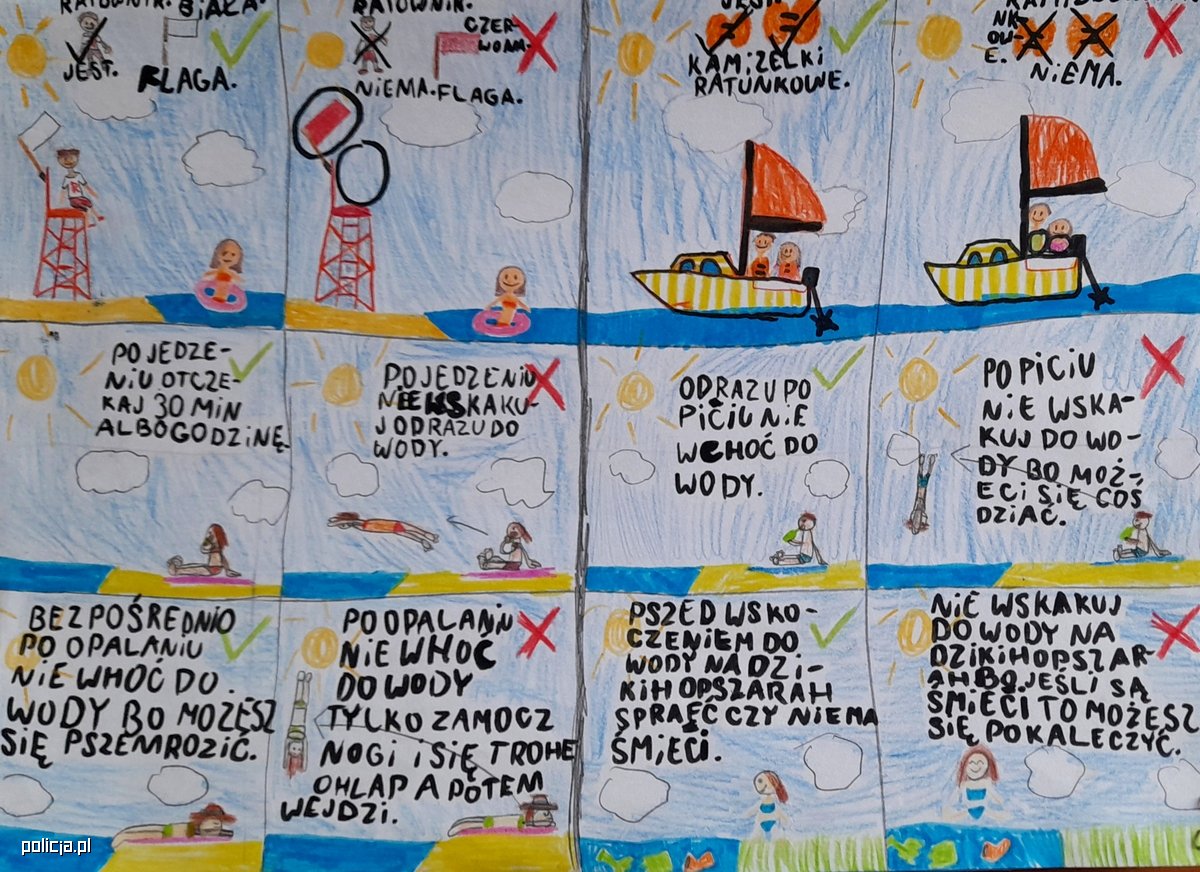 RATOWNIK. BIAŁA.
JEST.
FLAGA.
RATOWNIK.
CZER-
WOAM.
NIEMA. FLAGA.
JEST
KAMIZELKI
RATUNKOWE.
NK-
OW-
E.
NIEMA.
R
PO JEDZE-
NIU OTCZE-
KAJ 30 MIN
ALBO GODZINĘ.
PO JEDZENIU
NIE WSKAKU-
J ODRAZU DO
WODY.
ODRAZU PO
PICIU NIE
WCHOĆ DO
WODY.
PO PICIU
NIE WSKA-
KUJ DO WO-
DY BO MOŻ-
ECI SIĘ COŚ
DZIAĆ.
BEZ POŚREDNIO
PO OPALANIU
NIE WHOĆ DO.
WODY BO MOŻESZ
SIĘ PSZEMROZIĆ.
PO OPALANIU
NIE WHOĆ
DO WODY
TYLKO ZAMOCZ
NOGI I SIĘ TROHE
OHLAP A POTEM
WEJDZI.
PSZED WSKO-
CZENIEM DO
WODY NA DZI-
KIH OPSZARAH
SPRAĘĆ CZY NIEMA
ŚMIECI.
NIE WSKAKUJ
DO WODY NA
DZIKIH OPSZAR-
AH BO JEŚLI SĄ
ŚMIECI TO MOŻESZ
SIĘ POKALECZYĆ.
policja.pl